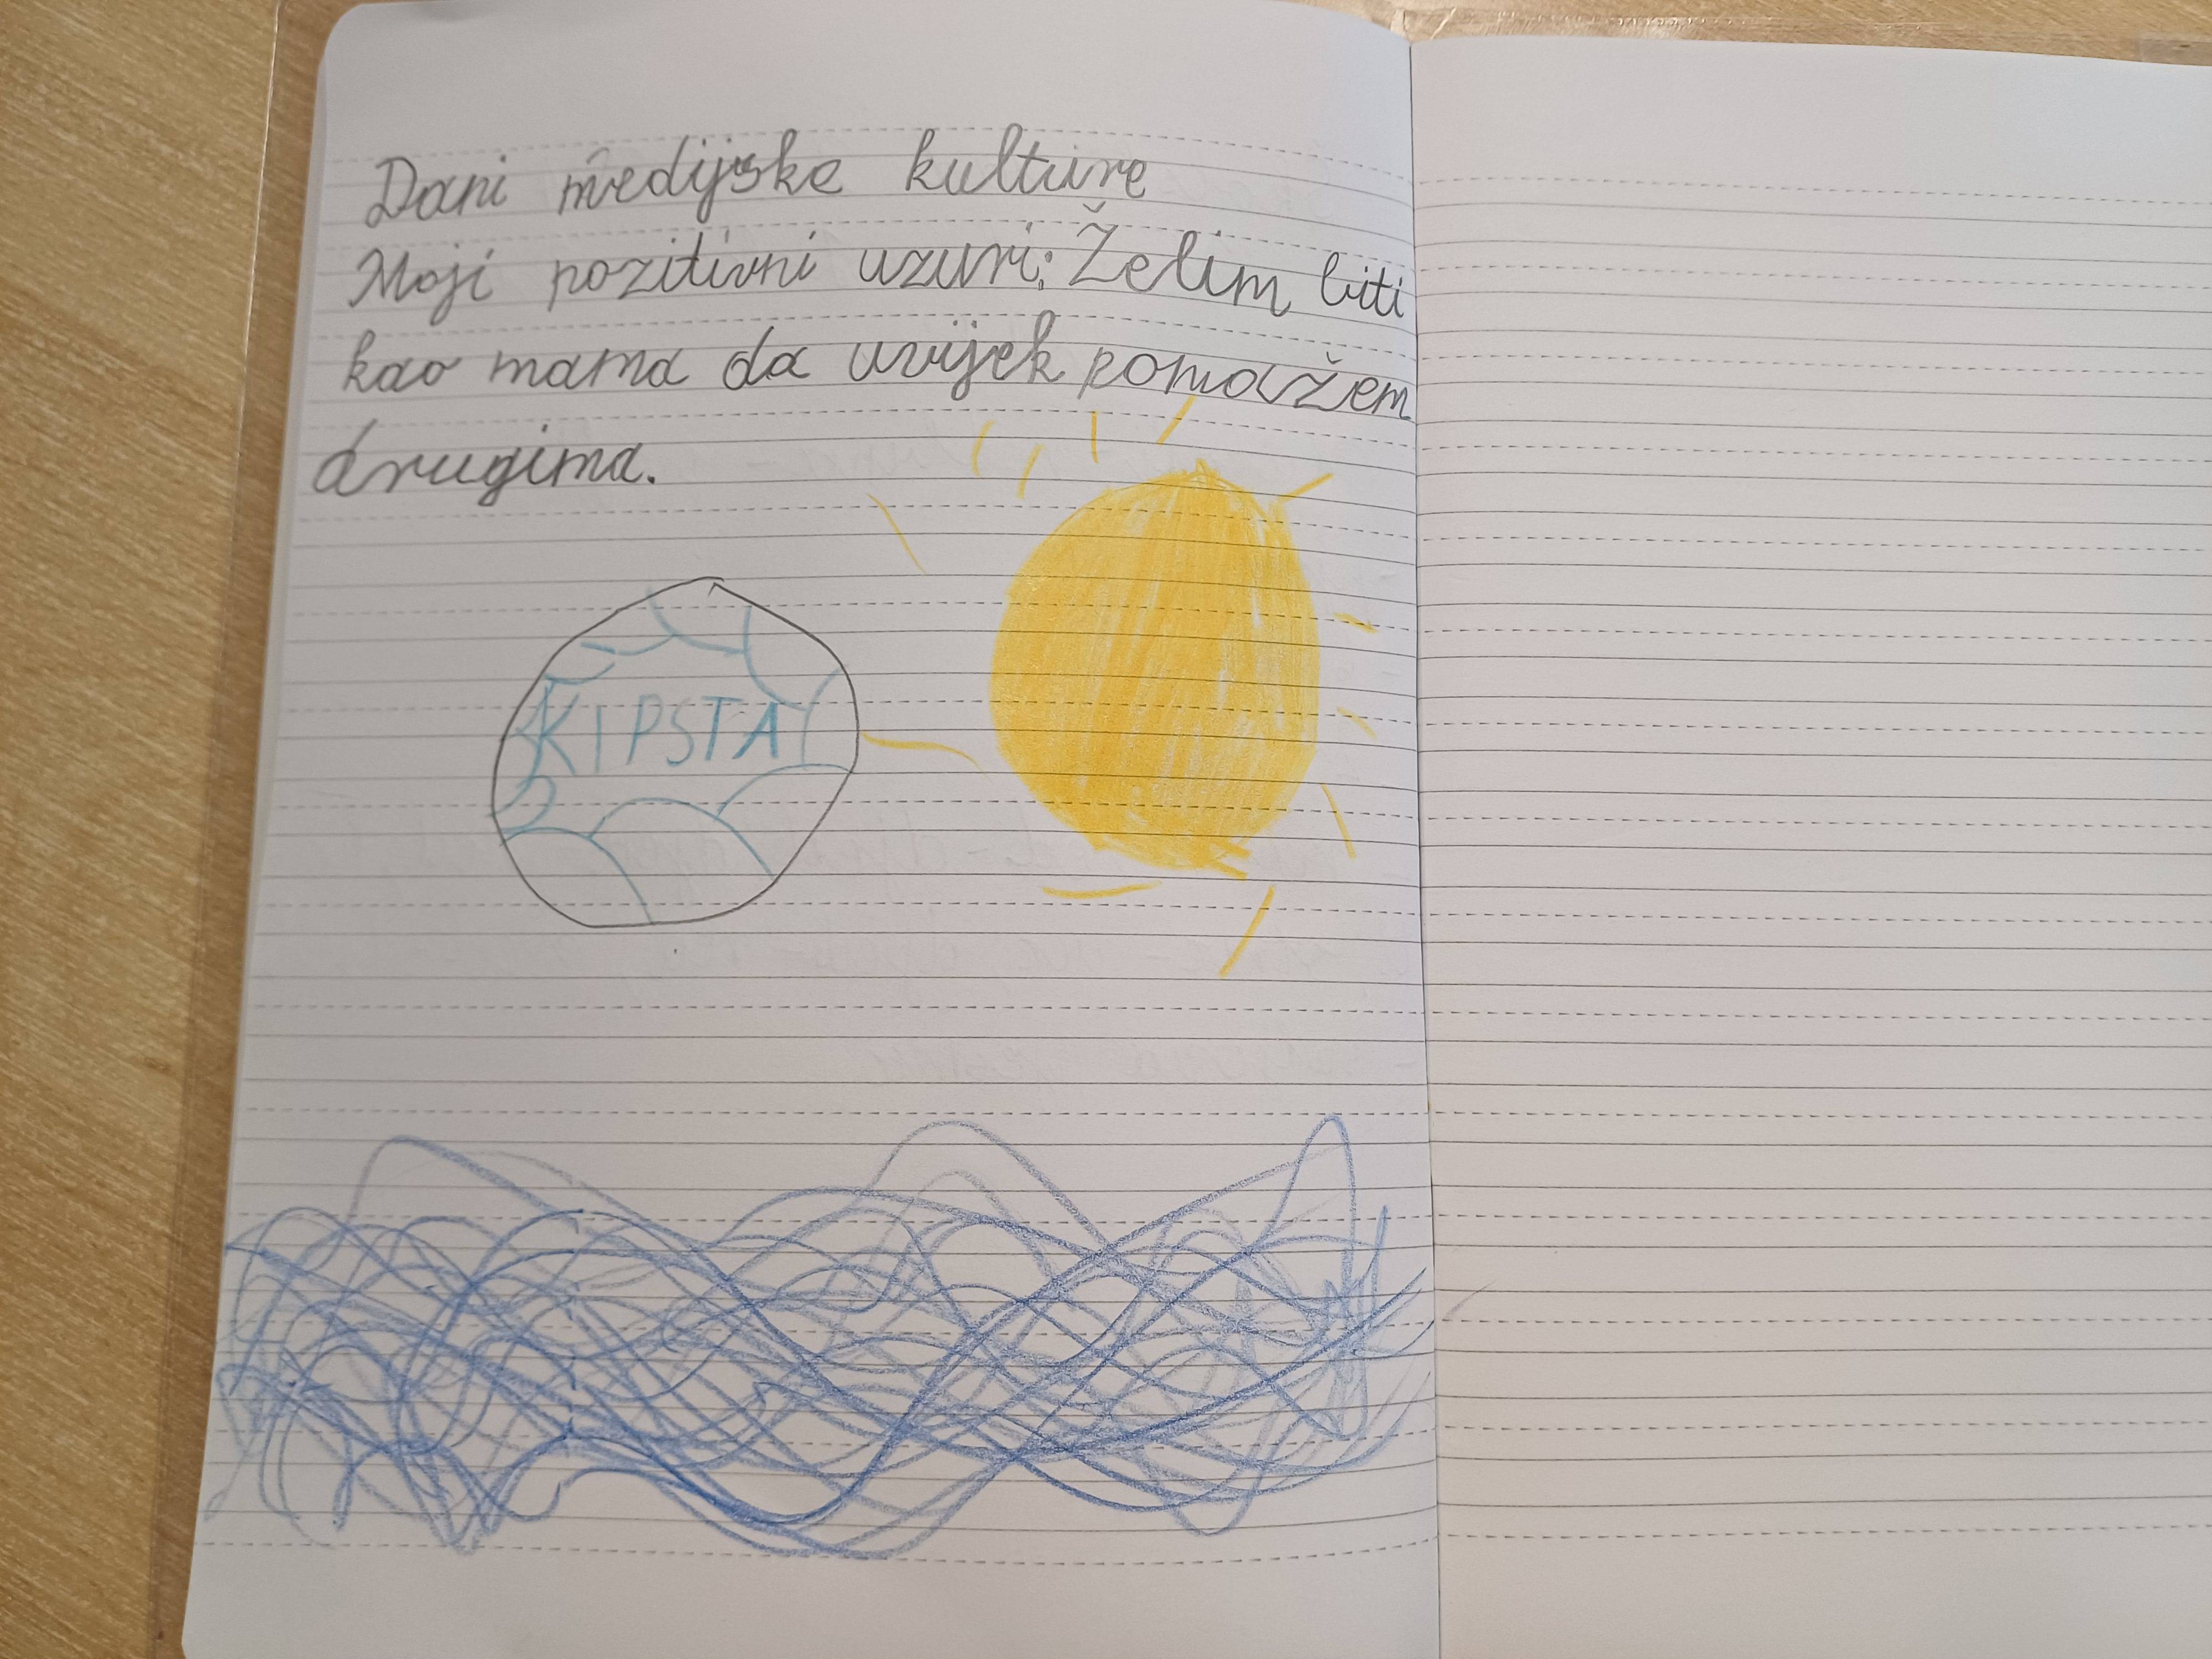 Dani medijske kulture
Moji pozitivni uzuri: Želim biti
kao mama da uvijek pomažem
drugima.
KIPSTA